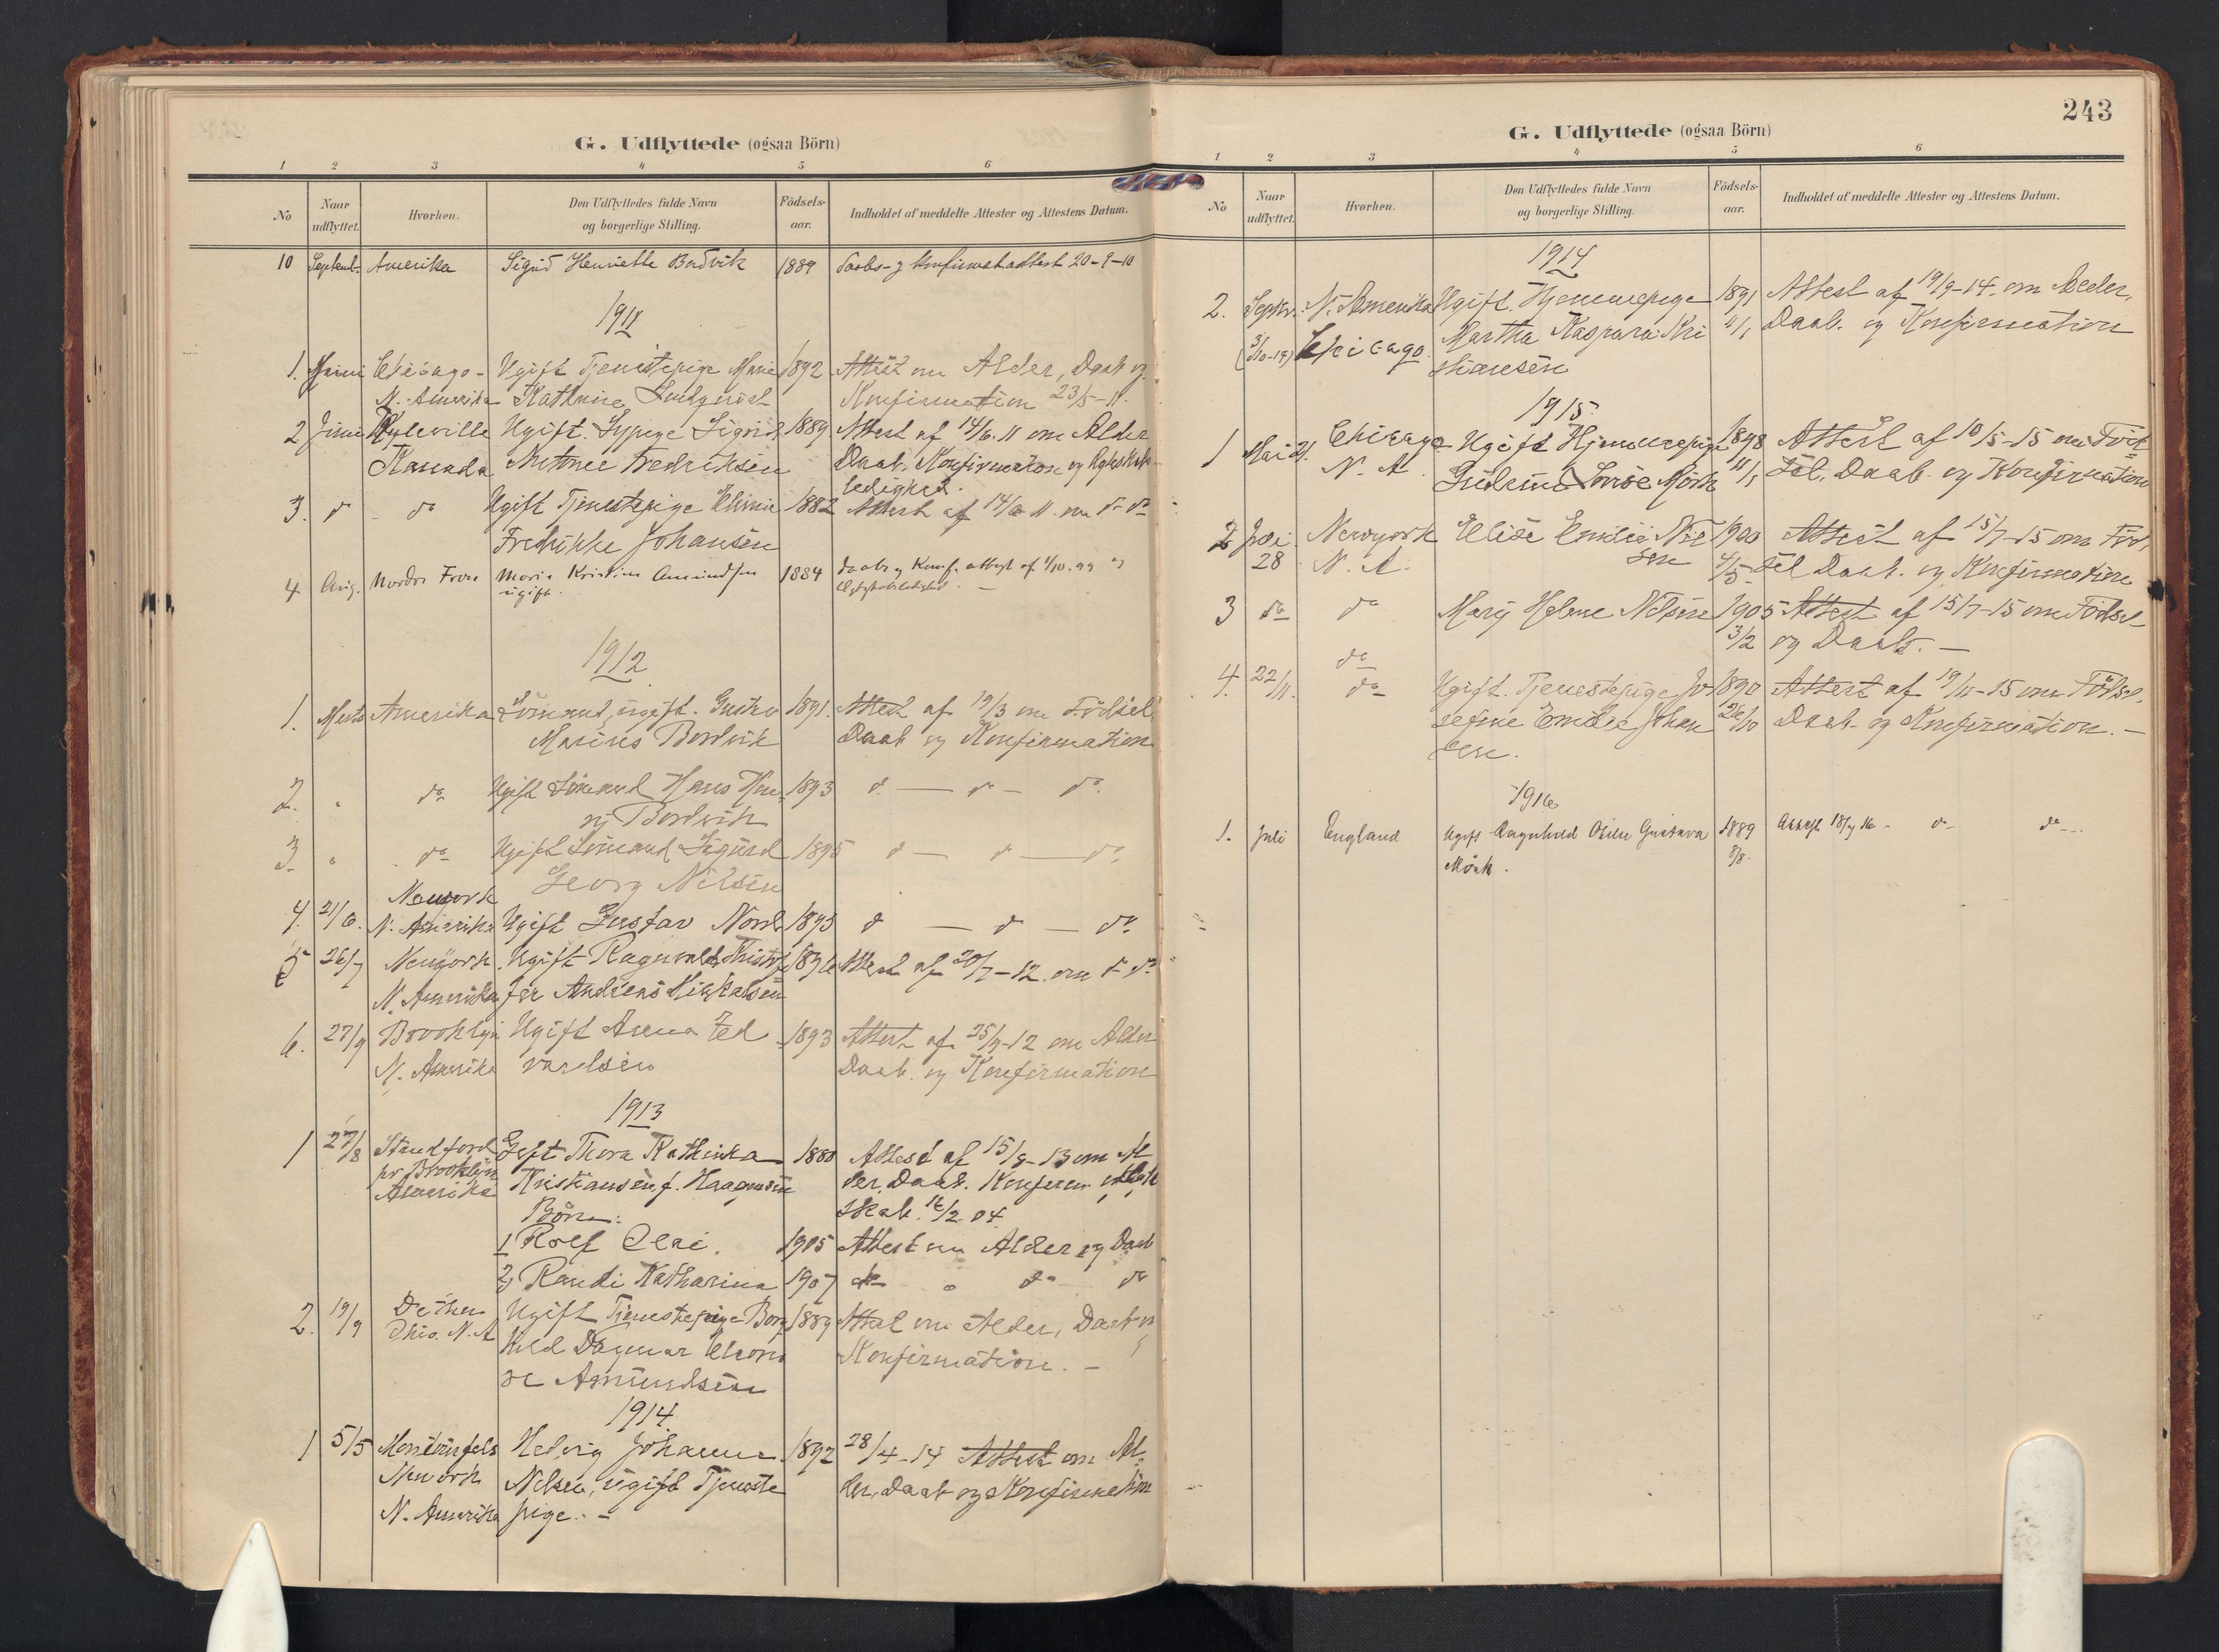 G. Udflyttede (ogsaa Börn)
1 2 3 4 5 6
No Naar udflyttet. Hvorhen. Den Udflyttedes fulde Navn og borgerlige Stilling. Födsels-aar. Indholdet af meddelte Attester og Attestens Datum.
10 Septemb. Amerika Sigrid Henriette Bordvik 1889 Daabs- g Konfirmatattest 20-9-10
1911
1. Chicago - Ugift Tjenestepige Marie 1892 Attest om Alder, Daab og
N. Amerika Kathrine Konfirmation 23/5-11.
2 Juni Kanada Ugift. Sypige Sigrid 1889 Attest af 14/6.11 om Alder
Fredriksen Daab, Konfirmation og
ledighed.
3. do do Ugift Tjenestepige 1882 Attest af 14/6 11. om do do
Fredrikke Johansen
4 Aug. Nordre Fron Maria Kristine Amundsen 1884 Daabs g Konf. attest af 1/10.99 og
ugift.
1912
1. Marts Amerika Sömand, ugift. Gustav 1891. Attest af 19/3 om Födsel
Marius Bordvik Daab og Konfirmation
2. " do Ugift Sömand Hans Hen- 1893 do — do — do
rij Bordvik
3. " do Ugift Sömand Sigurd 1895 do — do — do
Georg Nilsen
Newyork
4. 21/6. N. Amerika Ugift Gustav Nord 1893 do — do — do
5 26/7 Newyork. Ugift Ragnvald Kristof Attest af 20/7-12. om do do
N. Amerika fer Andreas
6. 27/9 Brooklyn Ugift Anna Ed 1893 Attest af 25/9-12 om Alder
N. Amerika vardsen Daab. og Konfirmation
1913
1 27/8 Gift Thora Kathinka 1880 Attest af 15/8-13 om Al
pr Brooklyn Kristiansen, f. der, Daab. Konferm.
Amerika Börn: skab. 16/2.04.
1 Rolf 1905 Attest om Alder og Daab
2) Randi Katharina 1907 do " do do
2. 19/9 Ohio. N. A Ugift Tjenestepige Borg 1889 Attest om Alder, Daab og
hild Dagmar Eleono Konfirmation. —
re Amundsen
1914
1 5/5 Hedvig Johanne 1892 28/4-14 Attest om Al-
Nework Nilsen, ugift Tjeneste der, Daab og Konfirmation
N. Amerika pige. -
243
G. Udflyttede (ogsaa Börn)
1 2 3 4 5 6
No Naar udflyttet. Hvorhen. Den Udflyttedes fulde Navn og borgerlige Stilling. Födsels-aar. Indholdet af meddelte Attester og Attestens Datum.
1914
2. Septbr. N. Amerika Ugift. Hjemmepige 1891 Attest af 19/9-14. om Alder,
(3/10-14) Chicago. Martha Kaspara Kri 4/1 Daab. og Konfirmation
stiansen
1915
1 Mai 21. Chicago Ugift Hjemmepige 1898 Attest af 10/5-15 om Föd
N. A Louise Mörk 11/1 sel, Daab. og Konfirmation
2 Juli Newyork Elise Emilie Nil 1900 Attest af 15/7-15 om Föd,
28 N. A. sen 4/5 sel Daab. og Konfirmation
3 do do Mary Helene Nilsen 1905 Attest af 15/7-15 om Födsel
3/2 og Daab. —
do
4. 22/11. do Ugift. Tjenestepige Jo 1890 Attest af 19/11-15 om Födsel,
sefine Emilie Johan 26/10 Daab. og Konfirmation. —
sen.
1916
1. Juli England Ugift Ragnhild Gustava 1889 Attest 18/7 16 - do do
Mörk. 8/8.